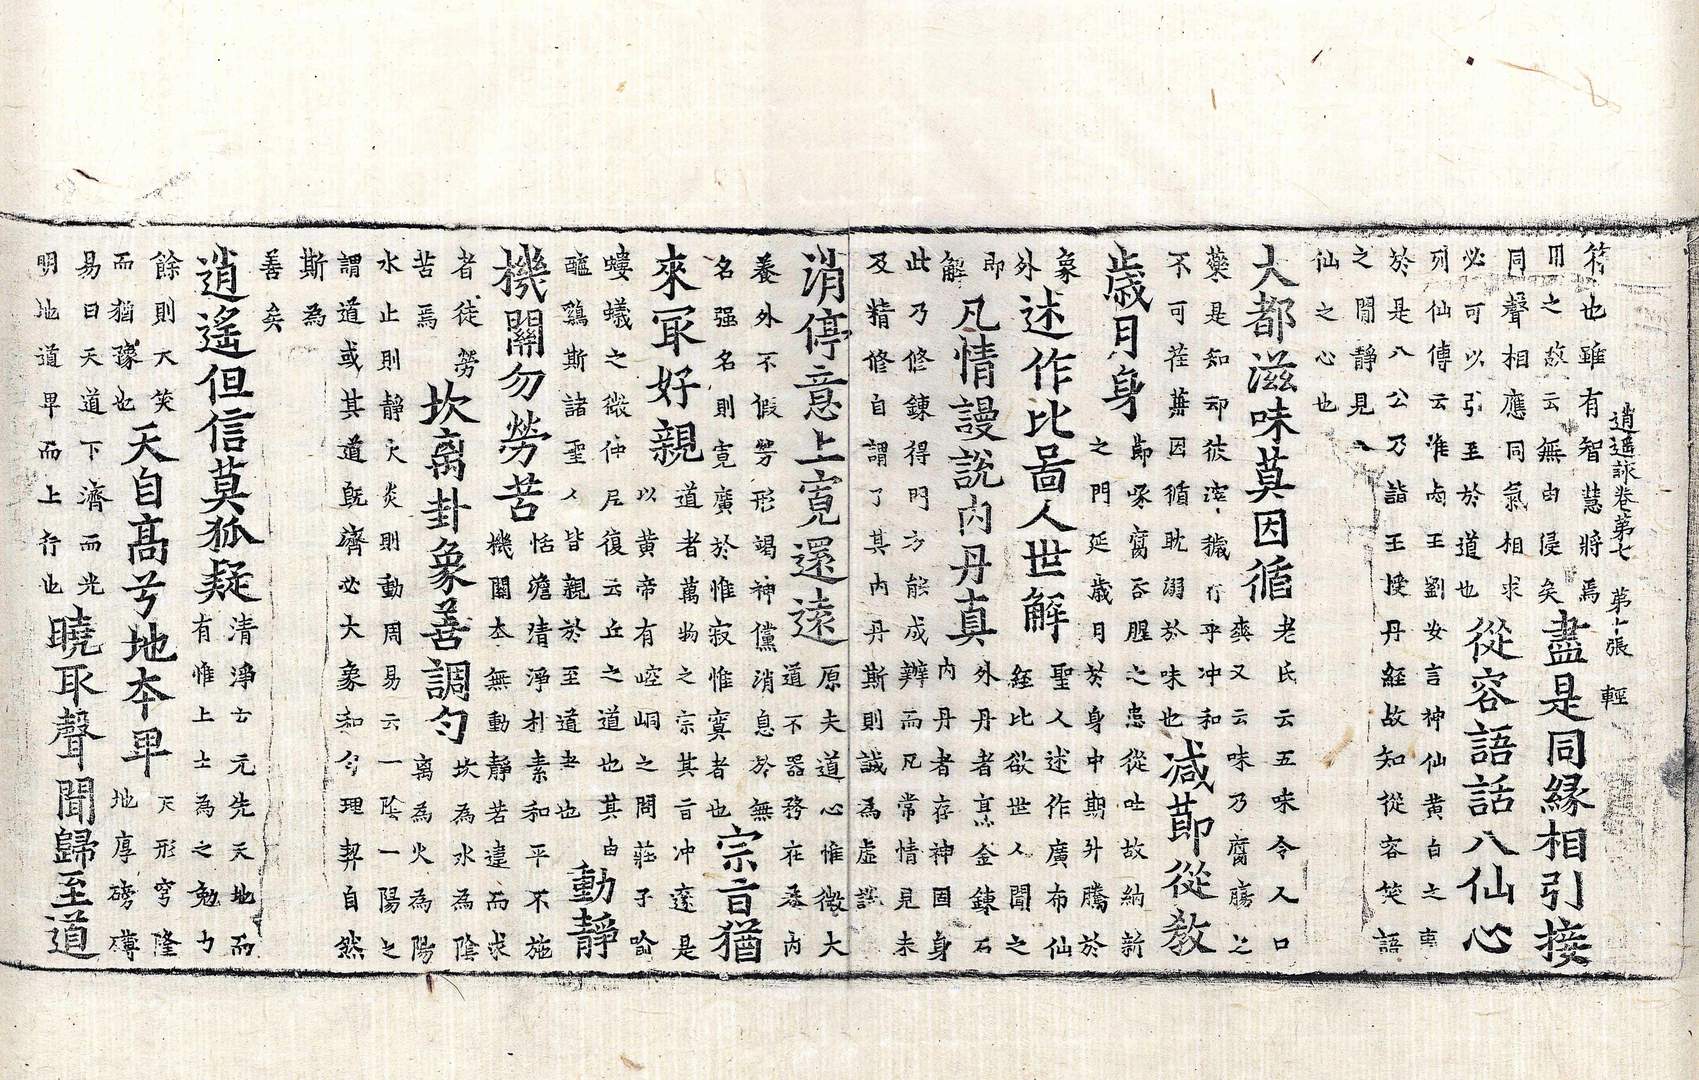 逍遥詠卷第七　第十張　輕
符也雖有智慧將焉
用之故云無由侵矣
盡是同緣相引接
同聲相應同氣相求
必可以引至於道也
從容語話八仙心
列仙傳云淮南王劉安言神仙黃白之事
於是八公乃詣王授丹経故知從容笑語
之間靜見八
仙之心也
大都滋味莫因循
老氏云五味令人口
爽又云味乃腐膓之
藥是知却彼滓穢行乎冲和
不可荏苒因循耽溺於味也
減莭從教
歲月身
莭啄腐吞腥之患從吐故納新
之門延歲月於身中期升騰於
象
外
述作比啚人世解
聖人述作廣布仙
経比欲世人聞之
即
解
凡情謾說內丹真
外丹者烹金鍊石
內丹者存神固身
此乃修鍊得門方能成辦而凡常情見未
及精修自謂了其內丹斯則誠為虛謬
消停意上寬還遠
原夫道心惟微大
道不器務在養內
養外不假勞形竭神儻消息於無
名强名則寬廣於惟寂惟寞者也
宗旨猶
來冣好親
道者萬物之宗其旨冲邃是
以黃帝有崆峒之問莊子喻
螻蟻之微仲尼復云丘之道也其由
醯鷄斯諸聖人皆親於至道者也
動靜
機關勿勞苦
恬澹清淨朴素和平不施
機關本無動靜苦違而求
者徒勞
苦焉
坎離卦象善調勻
坎為水為陰
離為火為陽
水止則靜火炎則動周易云一陰一陽之
謂道或其道既濟必大象和合理契自然
斯為
善矣
逍遙但信莫狐疑
清淨古元先天地而
有惟上士為之勉力
餘則大笑
而猶豫也
天自高兮地本卑
天形穹隆
地厚磅礴
易曰天道下濟而光
明地道卑而上行也
曉取聲聞歸至道